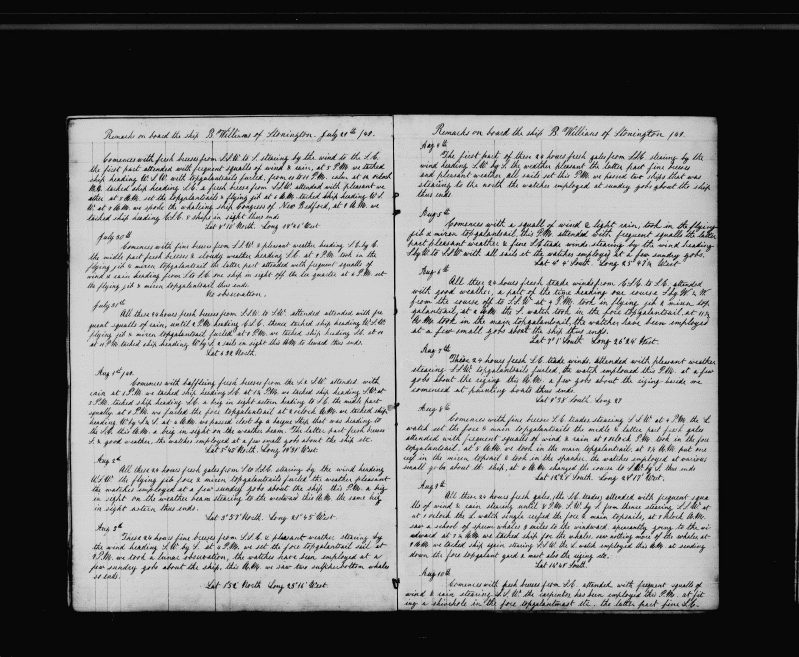 Remarks on board the ship B Williams of Stonington. July 29th /48.
Comences with fresh breeses from S.S.W. to S. stearing by the wind to the S.E.
the first part attended with frequent squalls of wind & rain, at 5 P.M. we tacked
ship heading W.S.W. with topgalantsails furled, from 10 to 11 P.M. calm at 12 oclock
tacked ship heading S.E. a fresh breese from S.S.W. attended with pleasant we
ather at 7 A.M. set the topgalantsails & flying jib at 6 A.M. tacked ship heading W.S.
W. at 7 A.M. we spoke the whaleing ship Congress of New Bedford, at 8 A.M. we
tacked ship heading E.S.E. 2 ships in sight thus ends
Lat 8°10 North. Long 18°41 West
July 30th
Comences with fine breeses from S.S.W. & pleasant weather heading S.E. by E.
the midle part fresh breeses & cloudy weather heading S.E. at 9 P.M. took in the
flying jib & mizen topgalantsail the latter part attended with frequent squalls of
wind & rain heading from S.E. to S.E. one ship in sight off the lee quarter at 6 P.M. set
the flying jib & mizen topgalantsail thus ends.
No observation.
July 31th
All these 24 hours fresh breeses from S.S.W. to S.W. attended with fre
quent squalls of rain, until 2 P.M. heading E.S.E. thence tacked ship heading W.S.W.
flying jib & mizen topgalantsail furled, at 7 P.M. we tacked ship heading S.E. at 10
at 11 P.M. tacked ship heading W. by S. 2 sails in sight this A.M. to leward thus ends.
Lat 6.32 North.
Aug 1st /48.
Comences with baffleing fresh breeses from the S. & S.W. attended with
rain at 1 P.M. we tacked ship heading S.E. at 3½ P.M. we tacked ship heading S.W. at
5 P.M. tacked ship heading S.E. a brig in sight astern heading to S.E. the midle part
squally at 8 P.M. we furled the fore topgalantsail at 2 oclock A.M. we tacked ship
heading W. by S. & S. at 6 A.M. we passed close by a barque ship that was heading to
the S.E. this A.M. a brig in sight on the weather beam. The latter part fresh breeses
S. & good weather, the watches employed at a few small gobs about the ship etc.
Lat 5°45 North. Long 20°31 West.
Aug 2d
All these 24 hours fresh gales from S. to S.S.E. stearing by the wind heading
W.S.W. the flying jib fore & mizen topgalantsails furled, the weather pleasant
the watches employed at a few sundry gobs about the ship this P.M. a brig
in sight on the weather beam stearing to the westward this A.M. the same brig
in sight astern, thus ends.
Lat 3°57 North. Long 21°45 West.
Aug 3d
These 24 hours fine breeses from S.S.E. & pleasant weather stearing by
the wind heading S.W. by S. at 4 P.M. we set the fore topgalant sail at
9 P.M. we took a lunar observation, the watches have been employed at a
few sundry gobs about the ship, this A.M. we saw two sulpherbottom whales
so ends.
Lat 1.52 North Long 23°16 West.
Remarks on board the ship B Williams of Stonington /48.
Aug 4th
The first part of these 24 hours fresh gales from S.S.E. stearing by the
wind heading S.W. by S. the weather pleasant the latter part fine breeses
and pleasant weather, all sails set this P.M. we passed two ships that was
stearing to the north the watches employed at sundry gobs about the ship
thus ends
Aug 5th
Comences with a squall of wind & light rain, took in the flying
jib & mizen topgalantsail, this P.M. attended with frequent squalls the latter
part pleasant weather & fine S.E. trade winds stearing by the wind heading
S. by W. to S.S.W. with all sails set the watches employed at a few sundry gobs.
Lat 4°4 South. Long 25°47½ West.
Aug 6th
All these 24 hours fresh trade winds from E.S.E. to S.E. attended
with good weather, a part of the time heading our course S. by W. & W.
from the course off to S.S.W. at 4 P.M. took in flying jib & mizen top
galantsail, at 2 A.M. the S. watch took in the fore topgalantsail at 11½
A.M. took in the main topgalantsail, the watches have been employed
at a few small gobs about the ship thus ends.
Lat 7°1 South. Long 26°24 West.
Aug 7th
These 24 hours fresh S.E. trade winds attended with pleasant weather
stearing S.S.W. topgalantsails furled, the watch employed this P.M. at a few
gobs about the riging this A.M. a few gobs about the riging beside we
comenced at painting boats thus ends.
Lat 9°38 South. Long 27
Aug 8th
Comences with fine breeses S.E. trades stearing S.S.W. at 4 P.M. the L.
watch set the fore & main topgalantsails the midle & latter part fresh gales
attended with frequent squalls of wind & rain at 9 oclock P.M. took in the fore
topgalantsail, at 2 A.M. we took in the main topgalantsail, at 3½ A.M. put one
reef in the mizen topsail & took in the spanker, the watches employed at various
small gobs about the ship, at 8 A.M. changed the course to S.W. by S. thus ends
Lat 12°28 South. Long 28°17 West.
Aug 9th
All these 24 hours fresh gales, the S.E. trades, attended with frequent squa
lls of wind & rain stearing until 8 P.M. S.W. by S. from thence stearing S.S.W. at
at 1 oclock the L. watch single reefed the fore & main topsails, at 7 oclock A.M.
saw a school of sperm whales 2 miles to the windward aparently going to the wi
ndward at 7½ A.M. we tacked ship for the whales, saw nothing more of the whales at
8 A.M. we tacked ship again stearing S.S.W. the L. watch employed this A.M. at sending
down the fore topgalant yard & mast also the riging etc.
Lat 14°48 South.
Aug 10th
Comences with fresh breeses from S.E. attended with frequent squalls of
wind & rain stearing S.S.W. the carpenter has been employed this P.M. at fit
ing a shivehole in the fore topgalantmast etc. the latter part fine S.E.